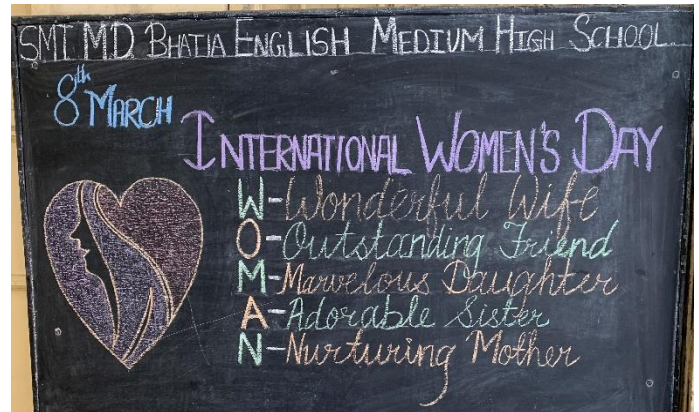 SMT M.D BHATIA ENGLISH MEDIUM HIGH SCHOOL
8th MARCH
INTERNATIONAL WOMEN'S DAY
W-Wonderful Wife
O-Outstanding Friend
M-Marvelous Daughter
A-Adorable Sister
N-Nurturing Mother